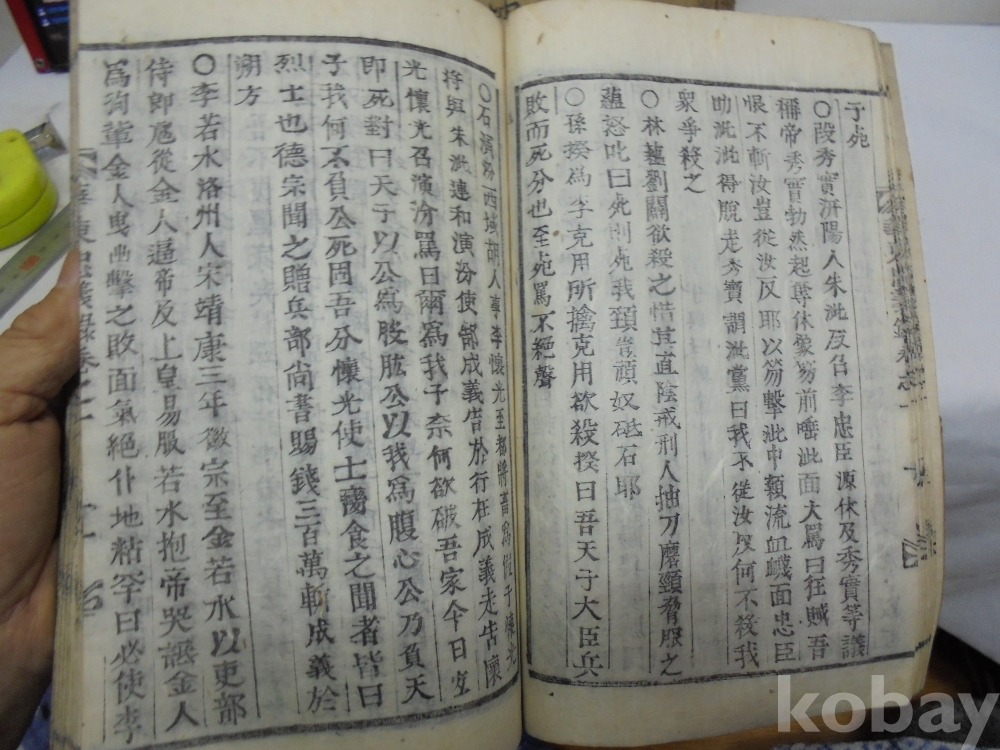 子死
○段秀實汧陽人朱泚反召李忠臣源休及秀實等議
稱帝秀實勃然起奪休象笏前唾泚面大罵曰狂賊吾
恨不斬汝豈從汝反耶以笏擊泚中額流血衊面忠臣
助泚泚得脫走秀實謂泚黨曰我不從汝反何不殺我
衆爭殺之
○林蘊劉闢欲殺之惜其直陰戒刑人抽刀磨頸脅服之
蘊怒叱曰死則死我頸豈頑奴砥石耶
○孫揆為李克用所擒克用欲殺揆曰吾天子大臣兵
敗而死分也至死罵不絕聲
○石演芬西域胡人事李懷光至都將畜爲假子懷光
將與朱泚連和演芬使郜成義告於行在成義走告懷
光懷光召演汾罵曰爾爲我子奈何欲破吾家今日空
即死對曰天子以公爲股肱公以我爲腹心公乃負天
子我何不負公死固吾分懷光使士臠食之聞者皆曰
烈士也德宗聞之贈兵部尚書賜錢三百萬斬成義於
朔方
○李若水洛州人宋靖康三年徽宗至金若水以吏部
侍郎扈從金人逼帝反上皇易服若水抱帝哭詆金人
爲狗輩金人曳出擊之敗面氣絕仆地粘罕曰必使李